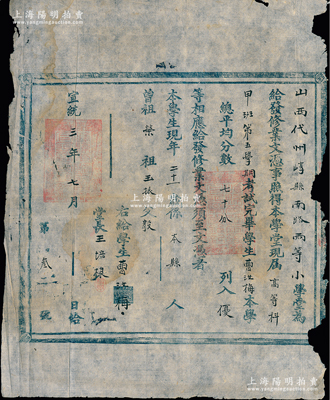 上海陽明拍賣
山西代州崞縣南路兩等小學堂為
給發修業文憑事照得本學堂現届高等科
甲班第五學期考試完畢學生曹汝梅本學
總平均分數七十分 列入優
等相應給發修業文憑須至文憑者
本學生現年二十 係本縣人
曾祖榮 祖玉 父
右給學生曹汝梅
堂長王
宣統三年七月 日給
第 號
上海陽明拍賣